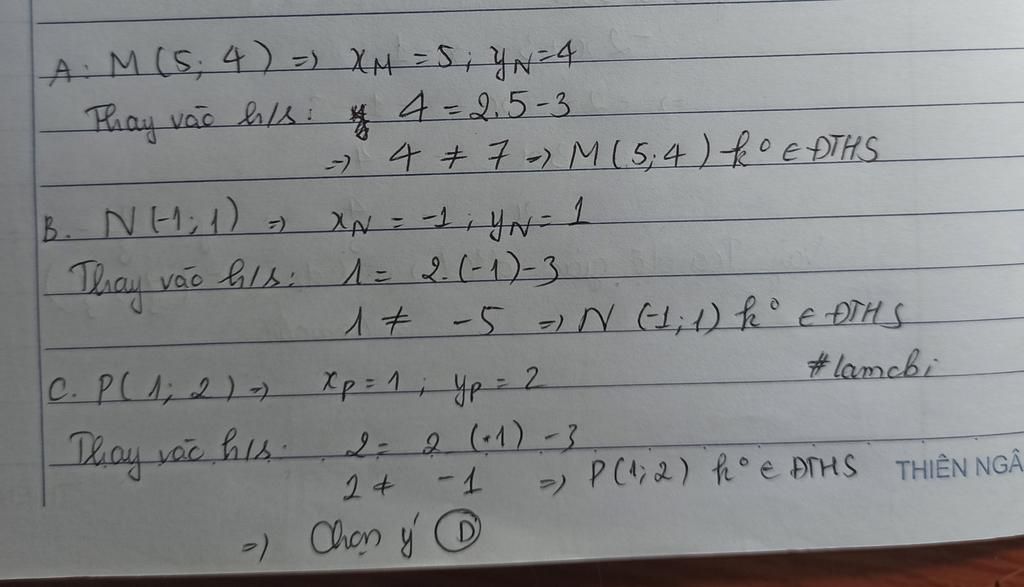 A: M(5; 4) => xM = 5; yN = 4
Thay vào h/s: 4 = 2.5 - 3
=> 4 ≠ 7 => M(5;4) k° ∈ ĐTHS
B. N(-1; 1) => xN = -1; yN = 1
Thay vào h/s: 1 = 2.(-1) - 3
1 ≠ -5 => N (-1; 1) k° ∈ ĐTHS
#lamcbi
C. P(1; 2) => xP = 1; yP = 2
Thay vào h/s. 2 = 2 (.1) - 3
2 ≠ -1 => P(1; 2) k° ∈ ĐTHS
THIÊN NGÂ
=> Chọn ý D